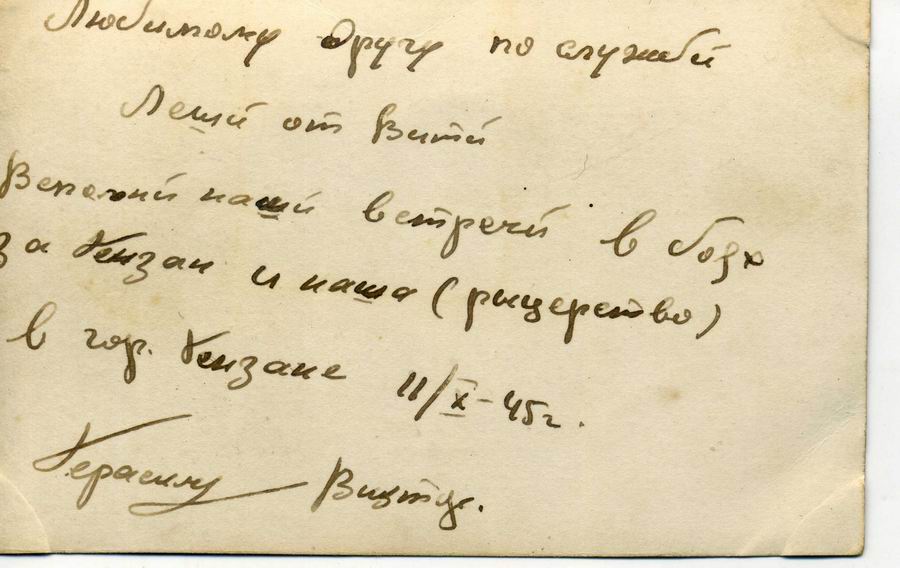 Любимому другу по службе
Леше от Вити
Вспомни наши встречи в боях
за Гензан и наша (рыцерство)
в гор. Гензане 11/X-45г.